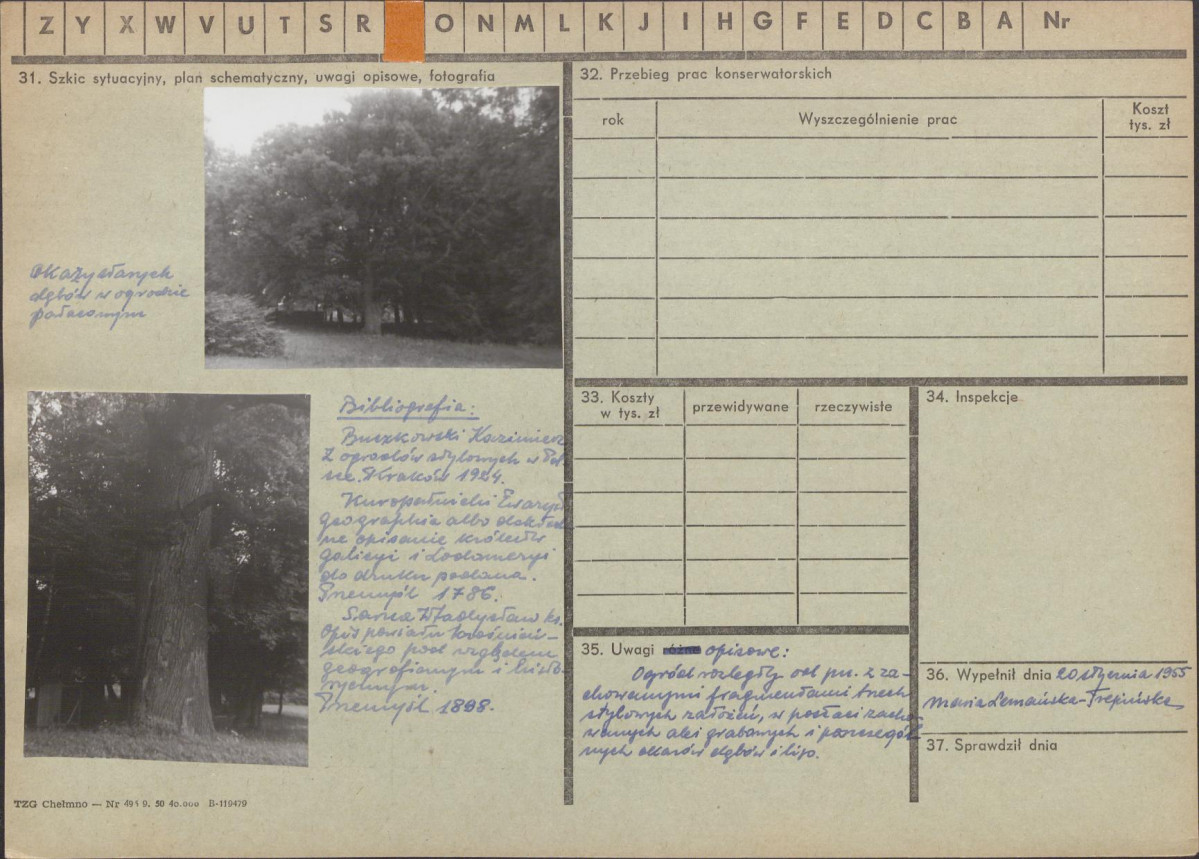 Z Y X W V U T S R O N M L K J I H G F E D C B A Nr
31. Szkic sytuacyjny, plan schematyczny, uwagi opisowe, fotografia
Okazy starych
dębów w ogrodzie
pałacowym
Bibliografia:
Buczkowski Kazimierz
Z ogrodów stylowych w Pol-
sce. Kraków 1924.
Kuropatnicki Ewaryst
geographia albo dokład-
ne opisanie królestw
galicyi i Lodomeryi
do druku podana.
Przemyśl 1786.
Sarna Władysław ks.
Opis powiatu krośnień-
skiego pod względem
geograficznym i histo-
rycznym.
Przemyśl 1898.
TZG Chełmno — Nr 9. 50 40.000 B-119479
32. Przebieg prac konserwatorskich
rok Wyszczególnienie prac Koszt
tys. zł
33. Koszty
w tys. zł przewidywane rzeczywiste
34. Inspekcje
35. Uwagi opisowe:
Ogród rozległy od pn. z za-
chowanymi fragmentami trzech
stylowych założeń, w postaci zacho-
wanych alei grabowych i poszczegól-
nych okazów dębów i lip.
36. Wypełnił dnia 20 stycznia 1955
Maria
37. Sprawdził dnia